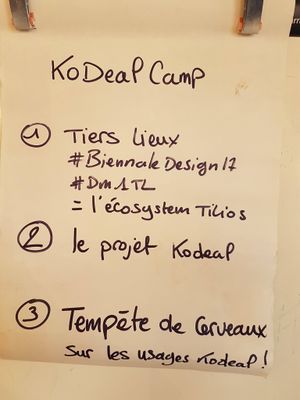 KoDeaf Camp
① Tiers Lieux
#Biennale Design 17
#Dm1TL
= l'écosystem Tilios
② le projet Kodeaf
③ Tempête de Cerveaux
Sur les usages Kodeaf !